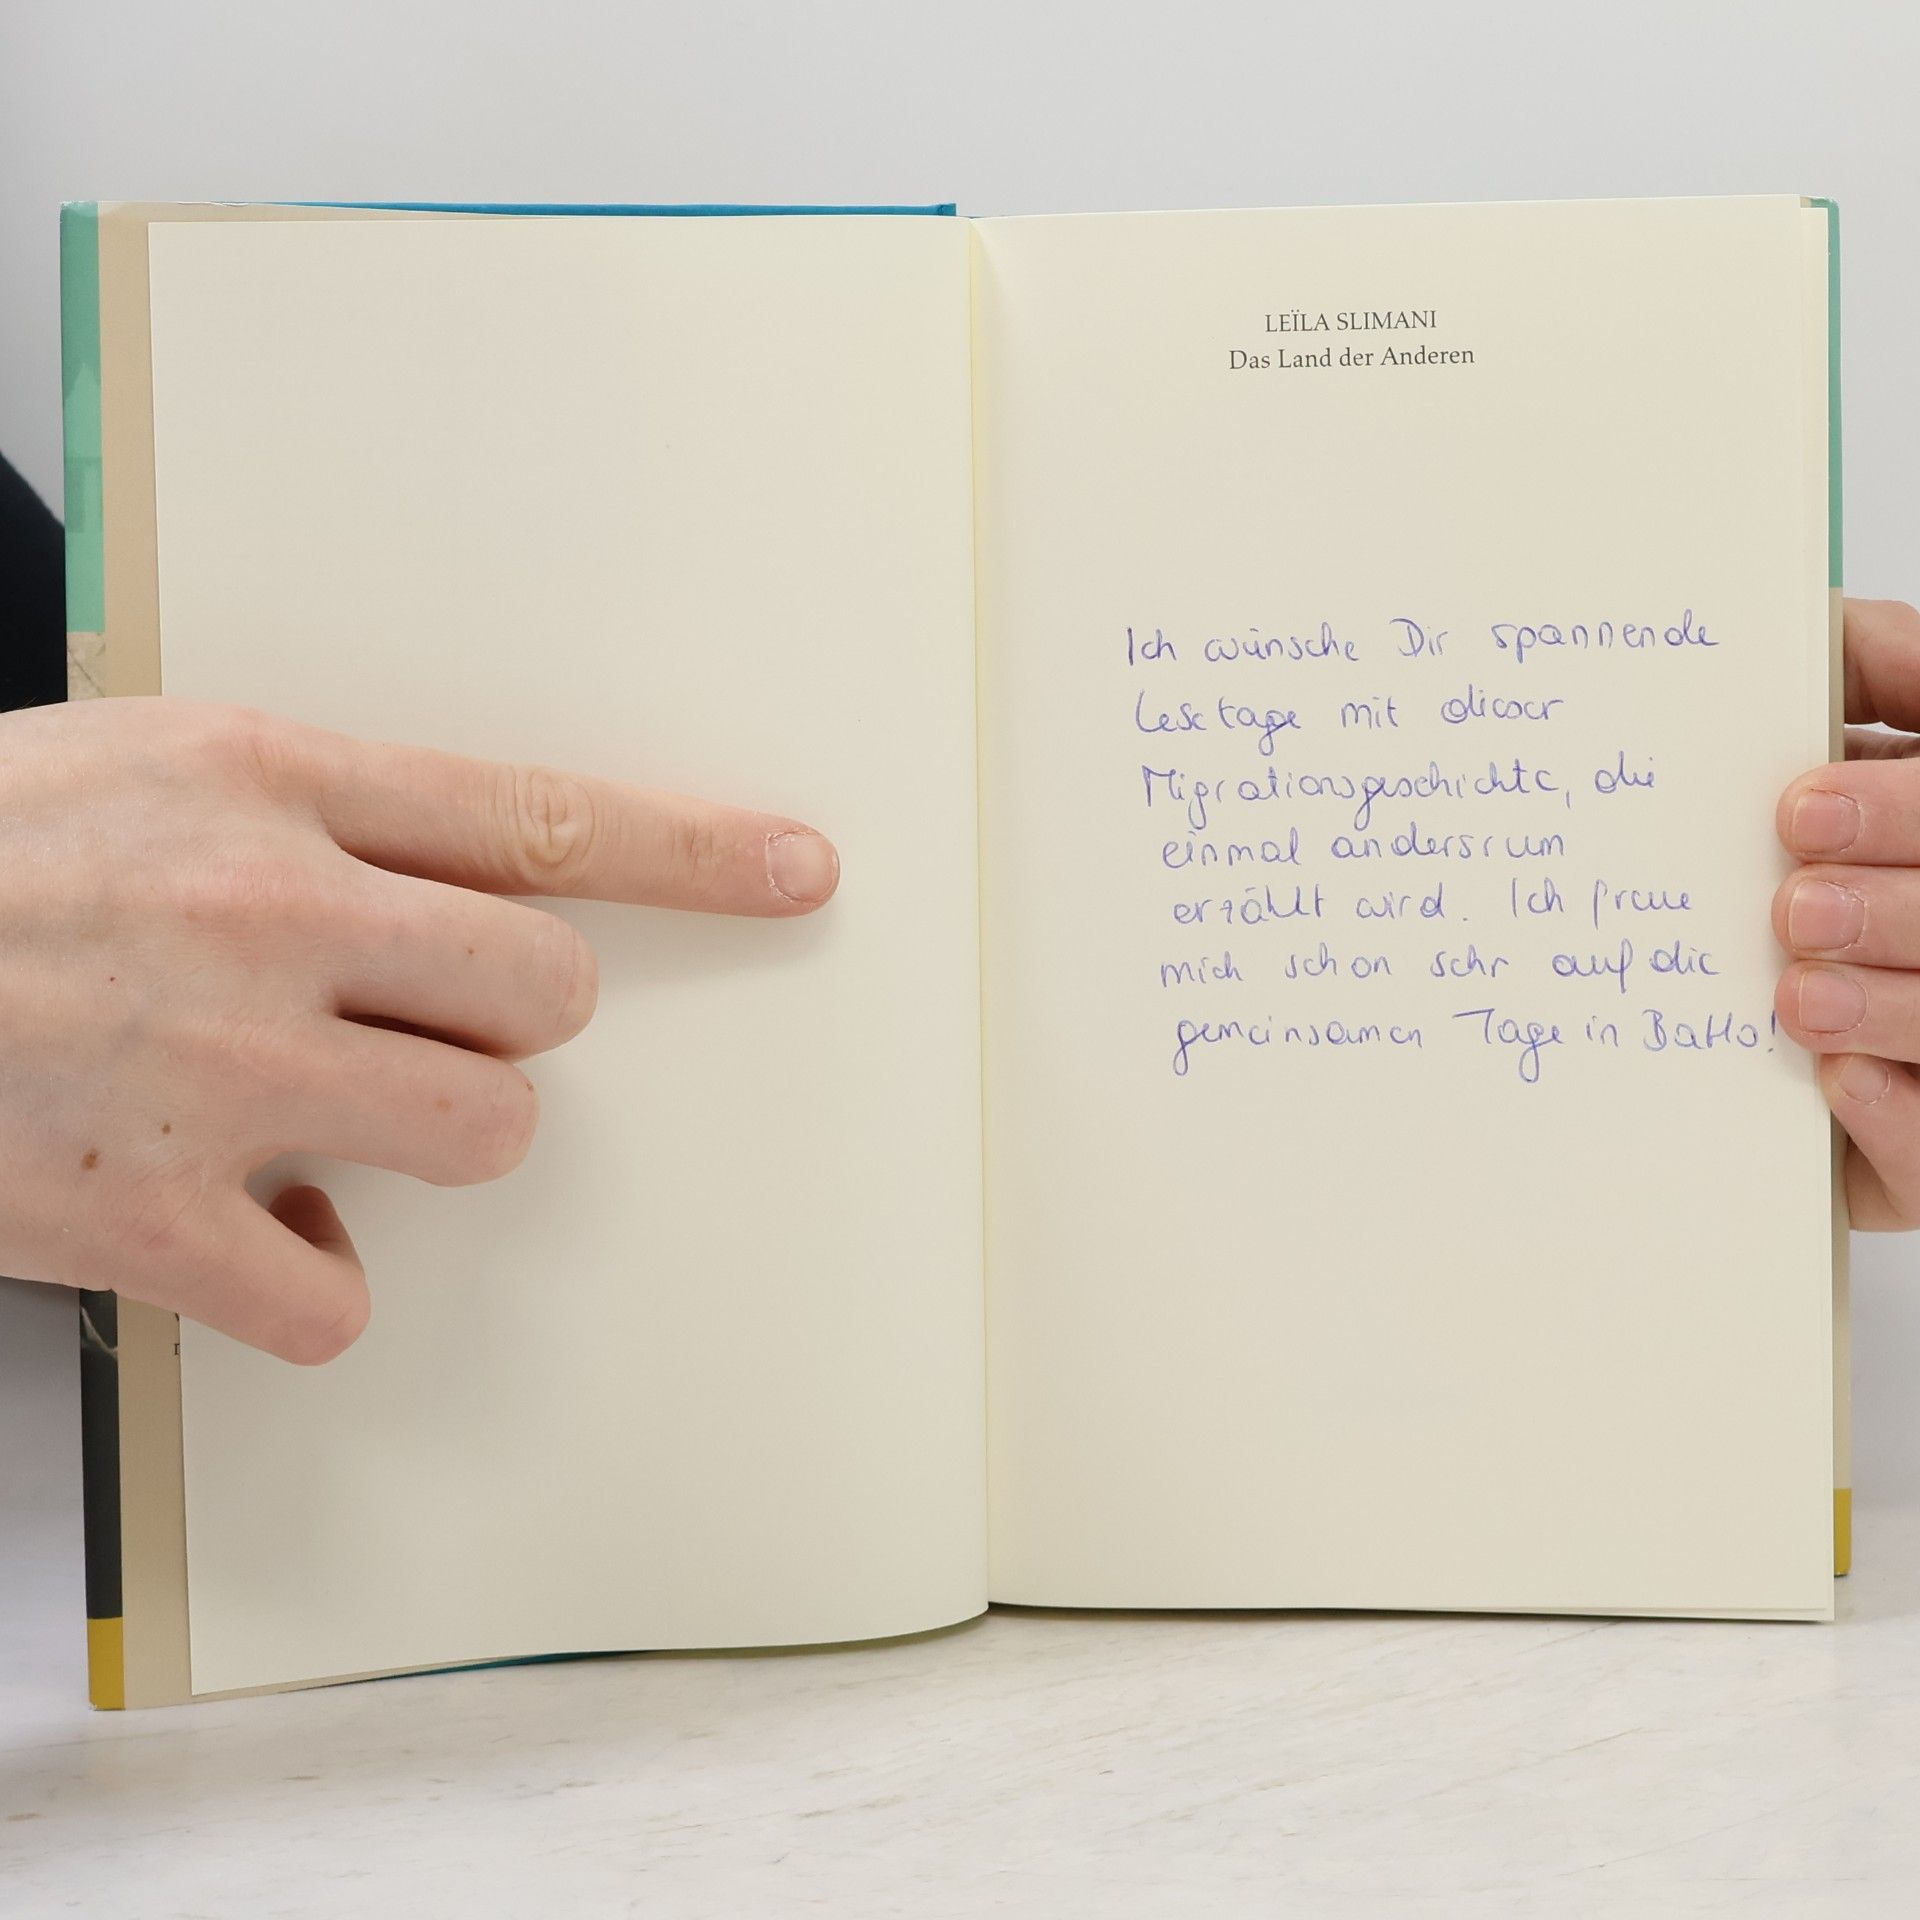 LEÏLA SLIMANI
Das Land der Anderen
Ich wünsche Dir spannende
Lesetage mit dieser
Migrationsgeschichte, die
einmal andersrum
erzählt wird. Ich freue
mich schon sehr auf die
gemeinsamen Tage in BaHo!